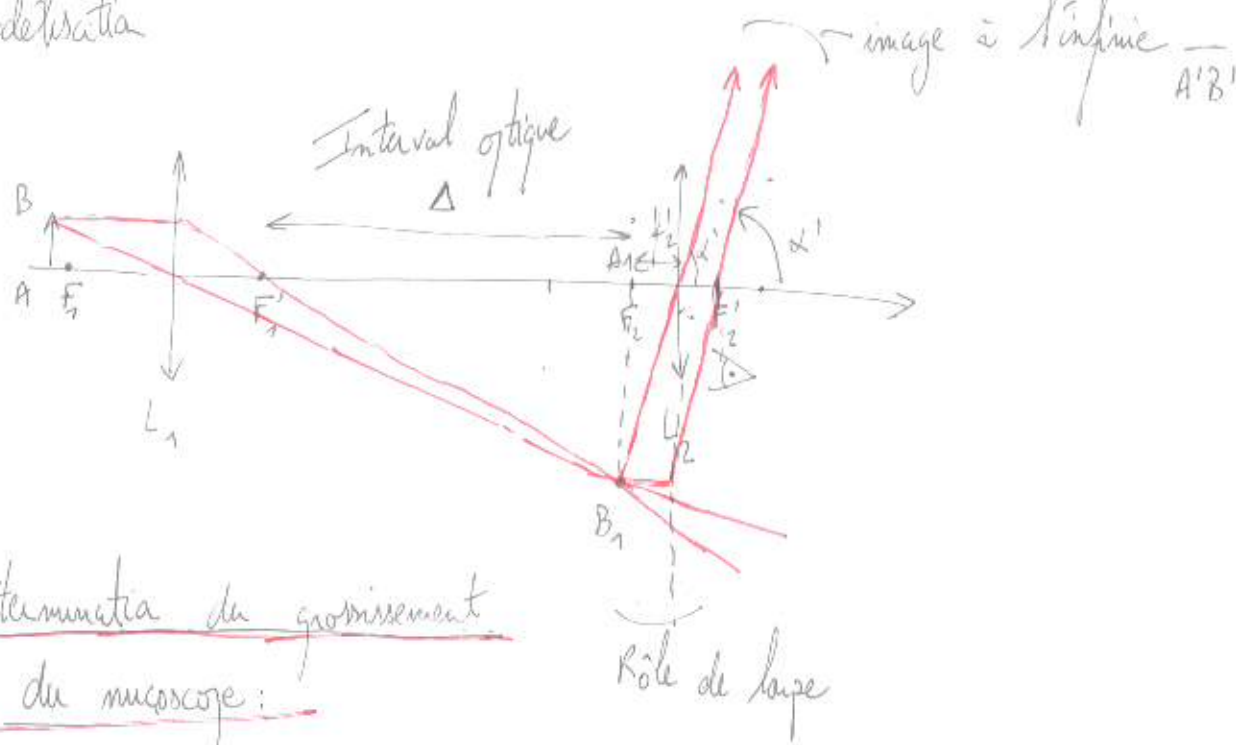 délisation
image à l'infinie
A'B'
Interval optique
Δ
B
A F₁
F'₁
A₁
f'₂
α'
α'
F₂
F'₂
L₁
L₂
B₁
terminatia du grossissement
du mucoscope :
Rôle de loupe